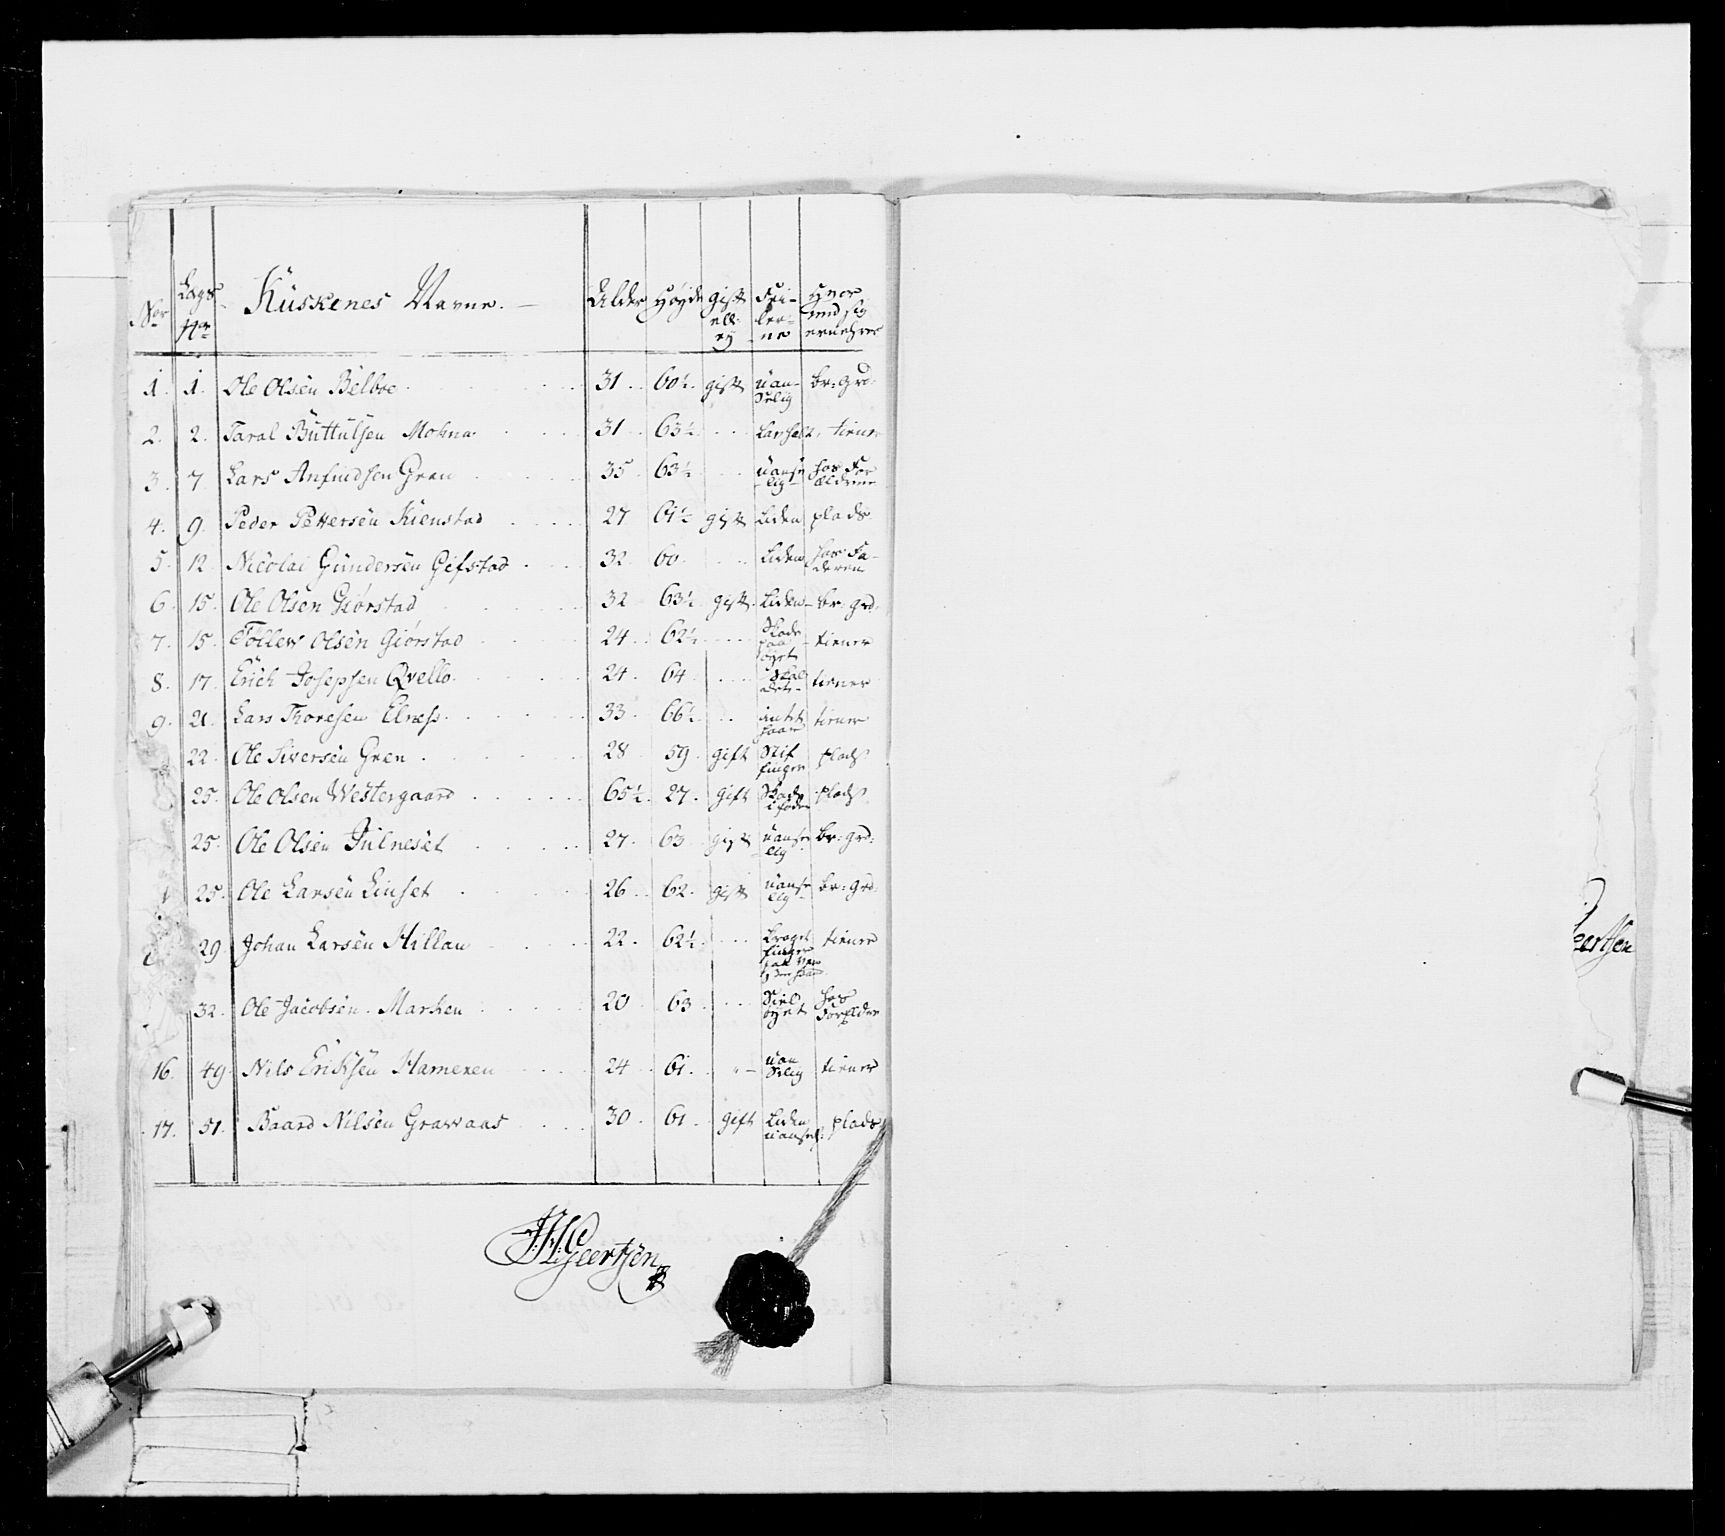 Nor Lægs Nr Küskenes Navne. Alder Höyde gift ell: ey Feilerne Hvor med sig ernehrer
1. 1. Ole Olsen Belboe 31 60½ gift üanselig br: grd:
2. 2. Taral Büttulsen Mohna 31 63½ tiener
3. 7. Lars Anfindsen Gren 35 63½ üanselig hos Forældrene
4. 9. Peder Pettersen Kienstad 27 61½ gift Liden plads
5. 12. Nicolai Gundersen Gifstad 32 60 Liden hos Faderen
6. 15. Ole Olsen Giörstad 32 63½ gift Liden br: grd:
7. 15. Töllew Olsen Giörstad 24 62½ Skade paa öyet tiener
8. 17. Erich Josepsen Qvello 24 64 Skaldet tiener
9. 21. Lars Thoresen Elness 33 66½ intet haar tiener
22. Ole Siversen Gren 28 59 gift Stif finger plads
25. Ole Olsen Westergaard 65½ 27 gift Skade plads
25. Ole Olsen Julneset 27 63 gift üanselig br: grd:
25. Ole Larsen Linset 26 62 gift üanselig br: grd:
29 Johan Larsen Hillan 22 62½ finger tiener
32. Ole Jacobsen Marken 20 63 öyet hos Forælder
16. 49 Nils Eriksen Hameren 24 61 üanselig tiener
17. 51. Baard Nilsen Grawaas 30 61 gift Liden üansel: plads
JHGeertsen
eertsen